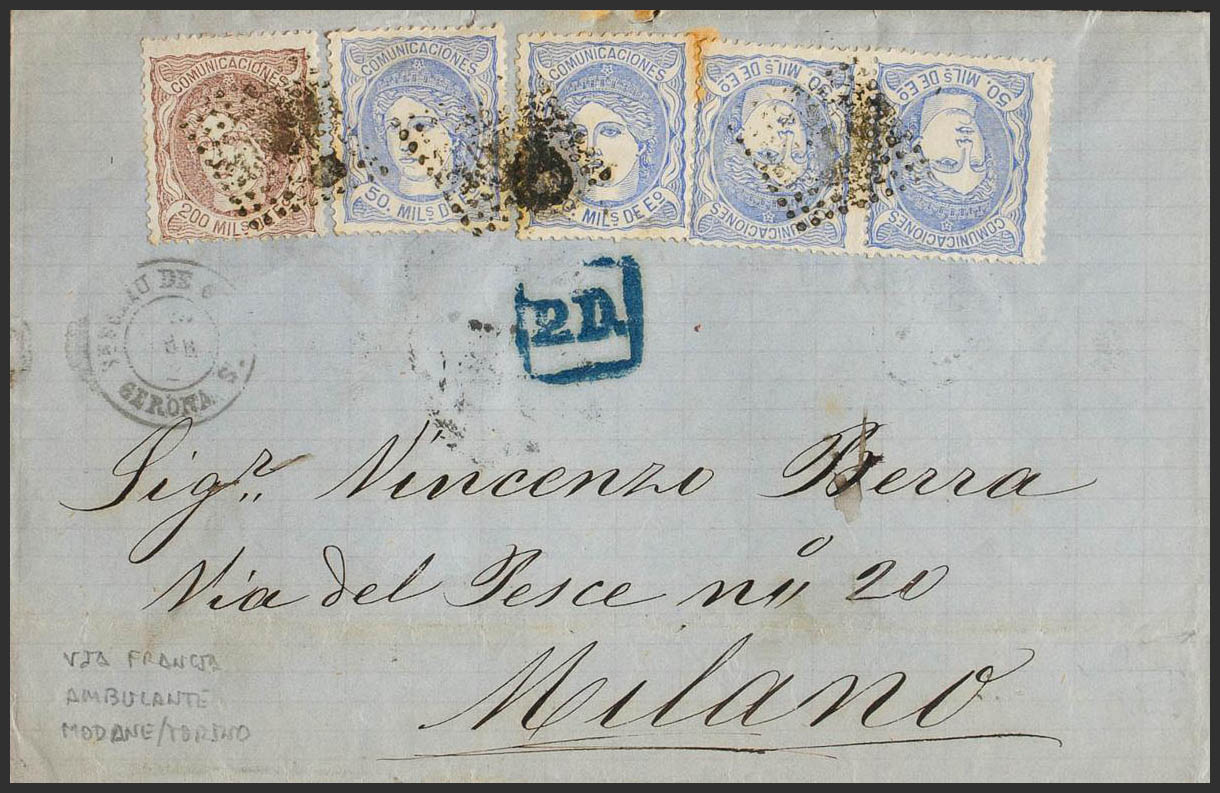 COMUNICACIONES
200 MILS DE
COMUNICACIONES
50. MILS DE
COMUNICACIONES
MILS DE EO
50. MILS DE EO
COMUNICACIONES
50. MILS DE EO
COMUNICACIONES
2D
DE
GERONA
Sigr. Vincenzo Berra
Via del Pesce no 20
Milano
VIA FRANCIA
AMBULANTE
MODANE/TORINO